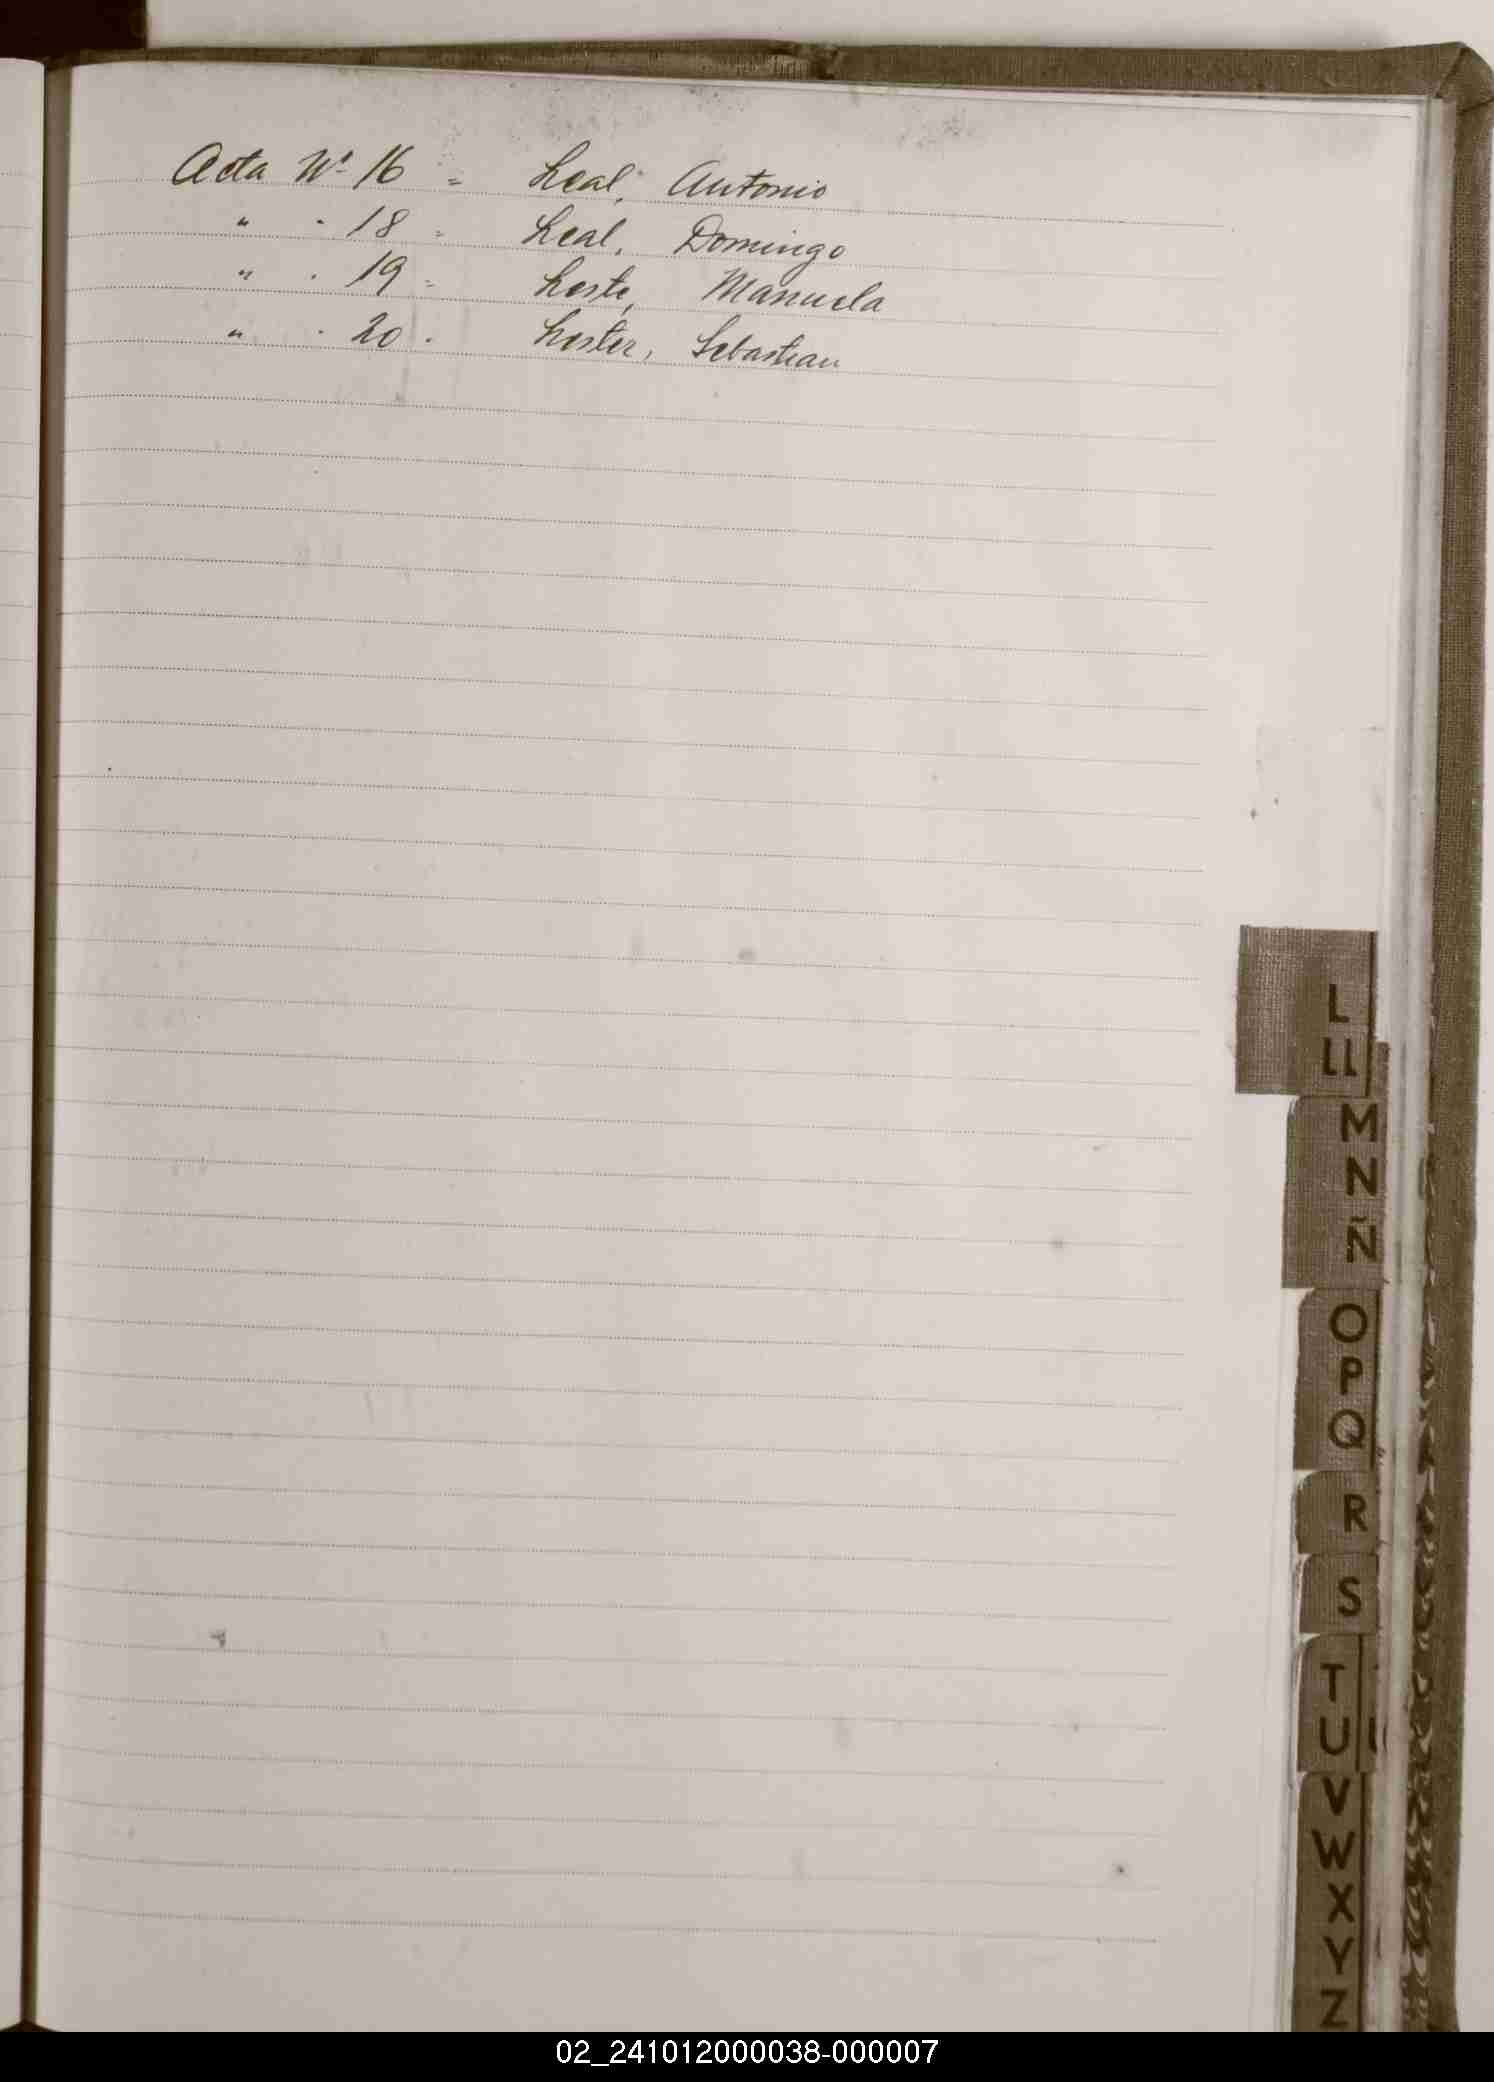 Acta Nº 16 = Leal, Antonio
" " 18 = Leal, Domingo
" " 19 = Leste, Manuela
" " 20 - Lester, Sebastian
L
LL
M
N
Ñ
O
P
Q
R
S
T
U
V
W
X
Y
Z
02_241012000038-000007